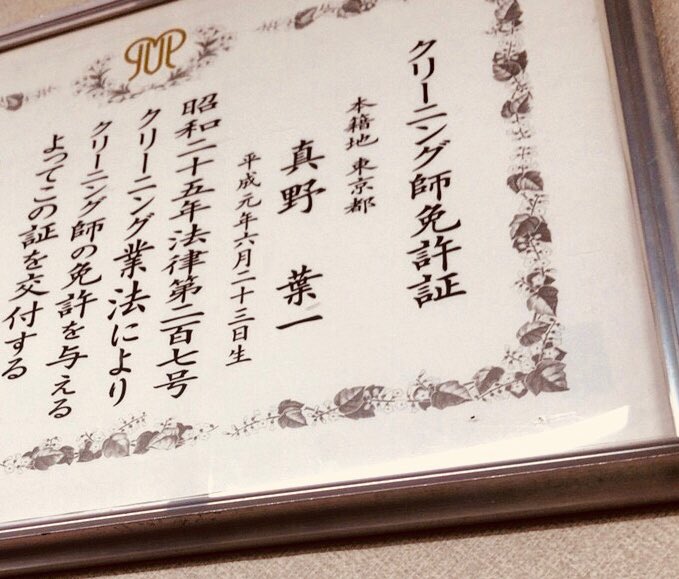 クリーニング師免許証
本籍地 東京都
真野 葉一
平成元年六月二十三日生
昭和二十五年法律第二百七号
クリーニング業法により
クリーニング師の免許を与える
よってこの証を交付する